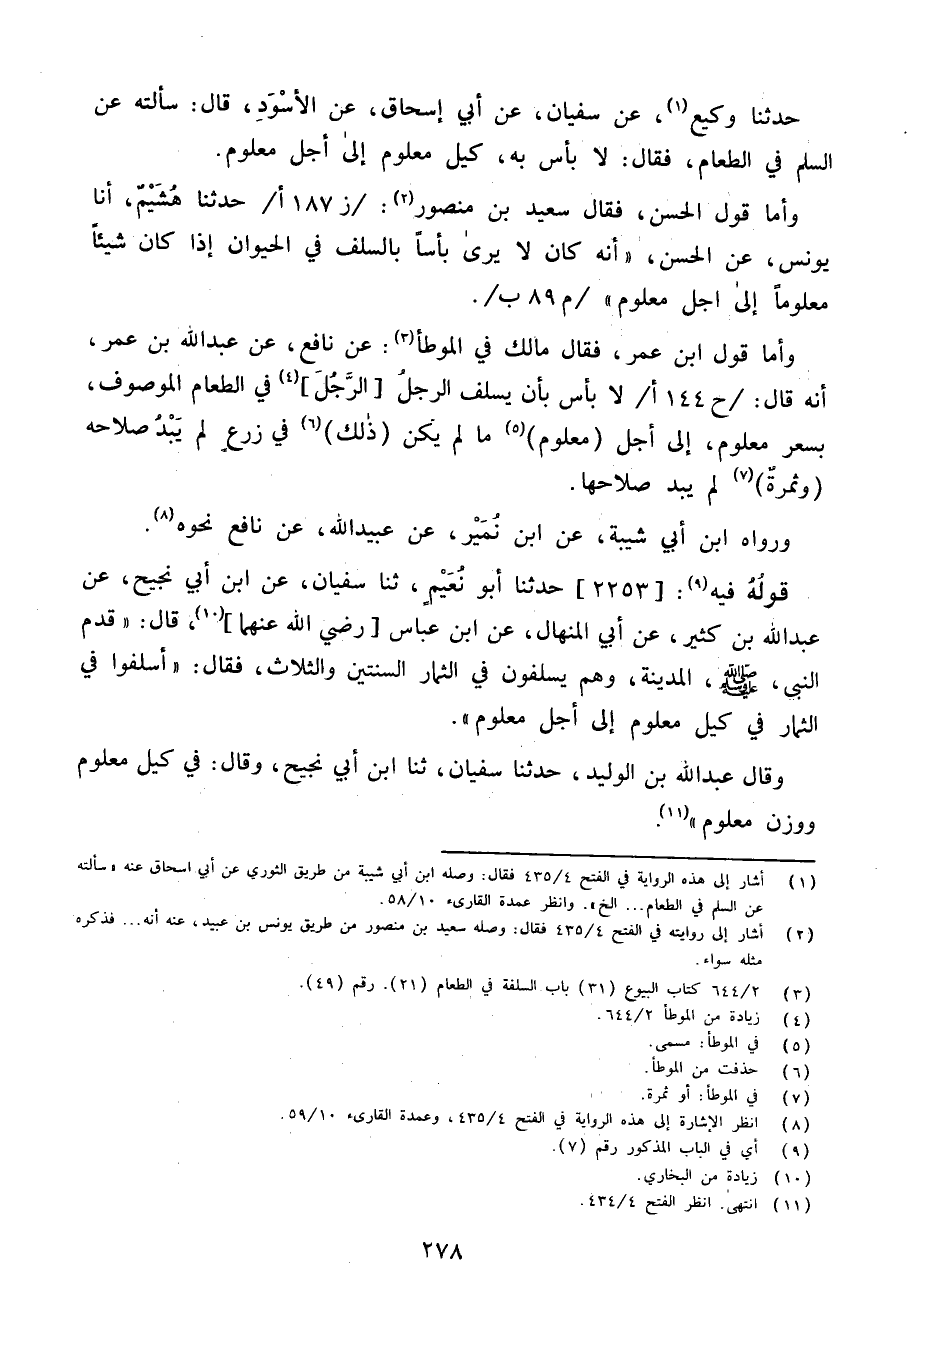 حدثنا وكيع(١)، عن سفيان، عن أبي إسحاق، عن الأسْوَدِ، قال: سألته عن
السلم في الطعام، فقال: لا بأس به، كيل معلوم إلىٰ أجل معلوم.
وأما قول الحسن، فقال سعيد بن منصور(٢): /ز ١٨٧ أ/ حدثنا هُشَيْمٌ، أنا
يونس، عن الحسن، «أنه كان لا يرىٰ بأساً بالسلف في الحيوان إذا كان شيئاً
معلوماً إلىٰ اجل معلوم» /م ٨٩ ب/.
وأما قول ابن عمر، فقال مالك في الموطأ(٣): عن نافع، عن عبدالله بن عمر،
أنه قال: /ح ١٤٤ أ/ لا بأس بأن يسلف الرجلُ [الرَّجُلَ](٤) في الطعام الموصوف،
بسعر معلوم، إلى أجل (معلوم)(٥) ما لم يكن (ذٰلك)(٦) في زرعٍ لم يَبْدُ صلاحه
(وثمرةٌ)(٧) لم يبد صلاحها.
ورواه ابن أبي شيبة، عن ابن نُمَيْر، عن عبيدالله، عن نافع نحوه(٨).
قولُهُ فيه(٩): [٢٢٥٣] حدثنا أبو نُعَيْمٍ، ثنا سفيان، عن ابن أبي نجيح، عن
عبدالله بن كثير، عن أبي المنهال، عن ابن عباس [رضي الله عنهما](١٠)، قال: «قدم
النبي، ﷺ، المدينة، وهم يسلفون في الثمار السنتين والثلاث، فقال: «أسلفوا في
الثمار في كيل معلوم إلى أجل معلوم».
وقال عبدالله بن الوليد، حدثنا سفيان، ثنا ابن أبي نجيح، وقال: في كيل معلوم
ووزن معلوم»(١١).
(١) أشار إلى هذه الرواية في الفتح ٤٣٥/٤ فقال: وصله ابن أبي شيبة من طريق الثوري عن أبي اسحاق عنه «سألته
عن السلم في الطعام... الخ». وانظر عمدة القارىء ٥٨/١٠.
(٢) أشار إلى روايته في الفتح ٤٣٥/٤ فقال: وصله سعيد بن منصور من طريق يونس بن عبيد، عنه أنه... فذكره
مثله سواء.
(٣) ٦٤٤/٢ كتاب البيوع (٣١) باب السلفة في الطعام (٢١). رقم (٤٩).
(٤) زيادة من الموطأ ٦٤٤/٢.
(٥) في الموطأ: مسمى.
(٦) حذفت من الموطأ.
(٧) في الموطأ: أو ثمرة.
(٨) انظر الإشارة إلى هذه الرواية في الفتح ٤٣٥/٤، وعمدة القارىء ٥٩/١٠.
(٩) أي في الباب المذكور رقم (٧).
(١٠) زيادة من البخاري.
(١١) انتهىٰ. انظر الفتح ٤٣٤/٤.
٢٧٨